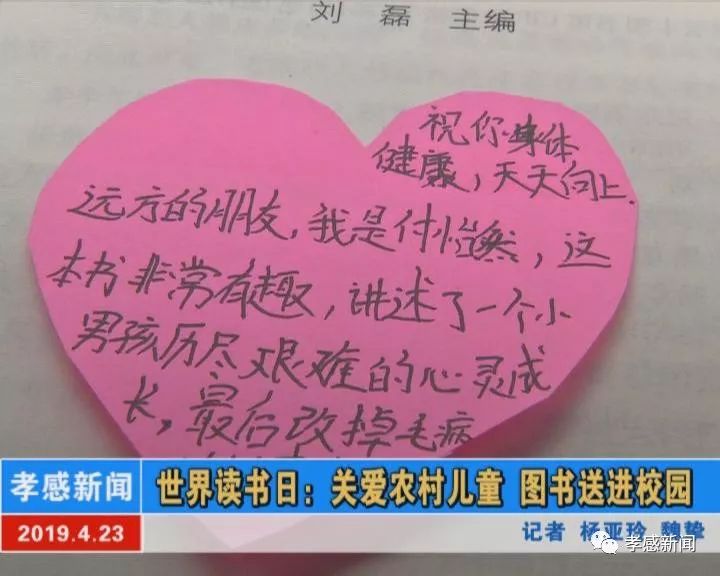 刘 磊 主编
祝你身体
健康，天天向上.
远方的朋友，我是付怡然，这
本书非常有趣，讲述了一个小
男孩历尽艰难的心灵成
长，最后改掉毛病
孝感新闻
世界读书日：关爱农村儿童 图书送进校园
2019.4.23
记者 杨亚玲 魏挚
孝感新闻